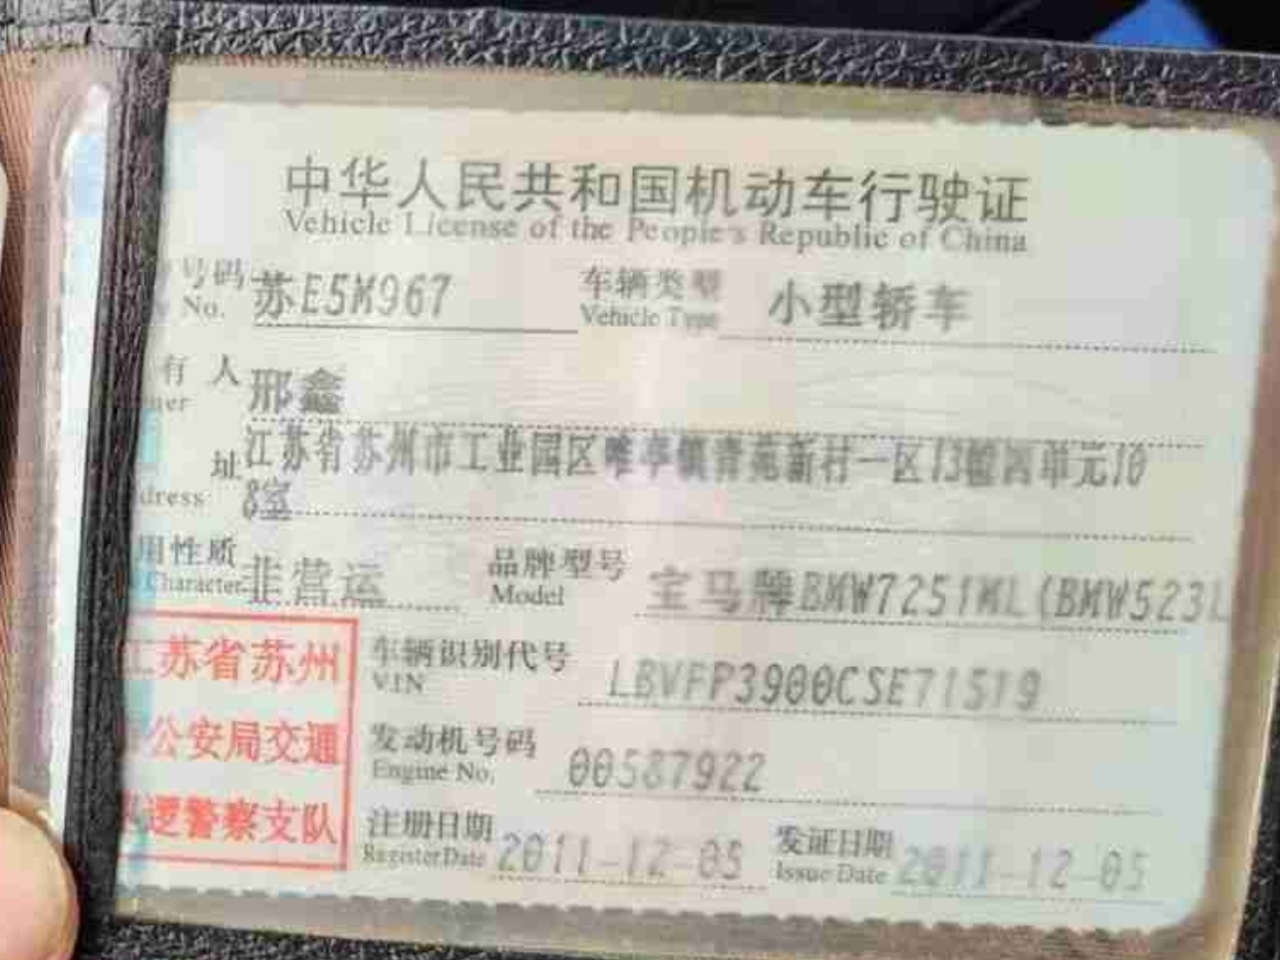 中华人民共和国机动车行驶证
Vehicle License of the People's Republic of China
号码 苏E5M967 车辆类型 小型轿车
No. Vehicle Type
有人 邢鑫
址 江苏省苏州市工业园区唯亭镇青苑新村一区13幢四单元10
dress 8室
用性质 非营运 品牌型号 宝马牌BMW7251ML(BMW523L
Character Model
苏省苏州 车辆识别代号 LBVFP3900CSE71519
VIN
公安局交通 发动机号码 00587922
Engine No.
逻警察支队 注册日期 2011-12-05 发证日期 2011-12-05
Register Date Issue Date